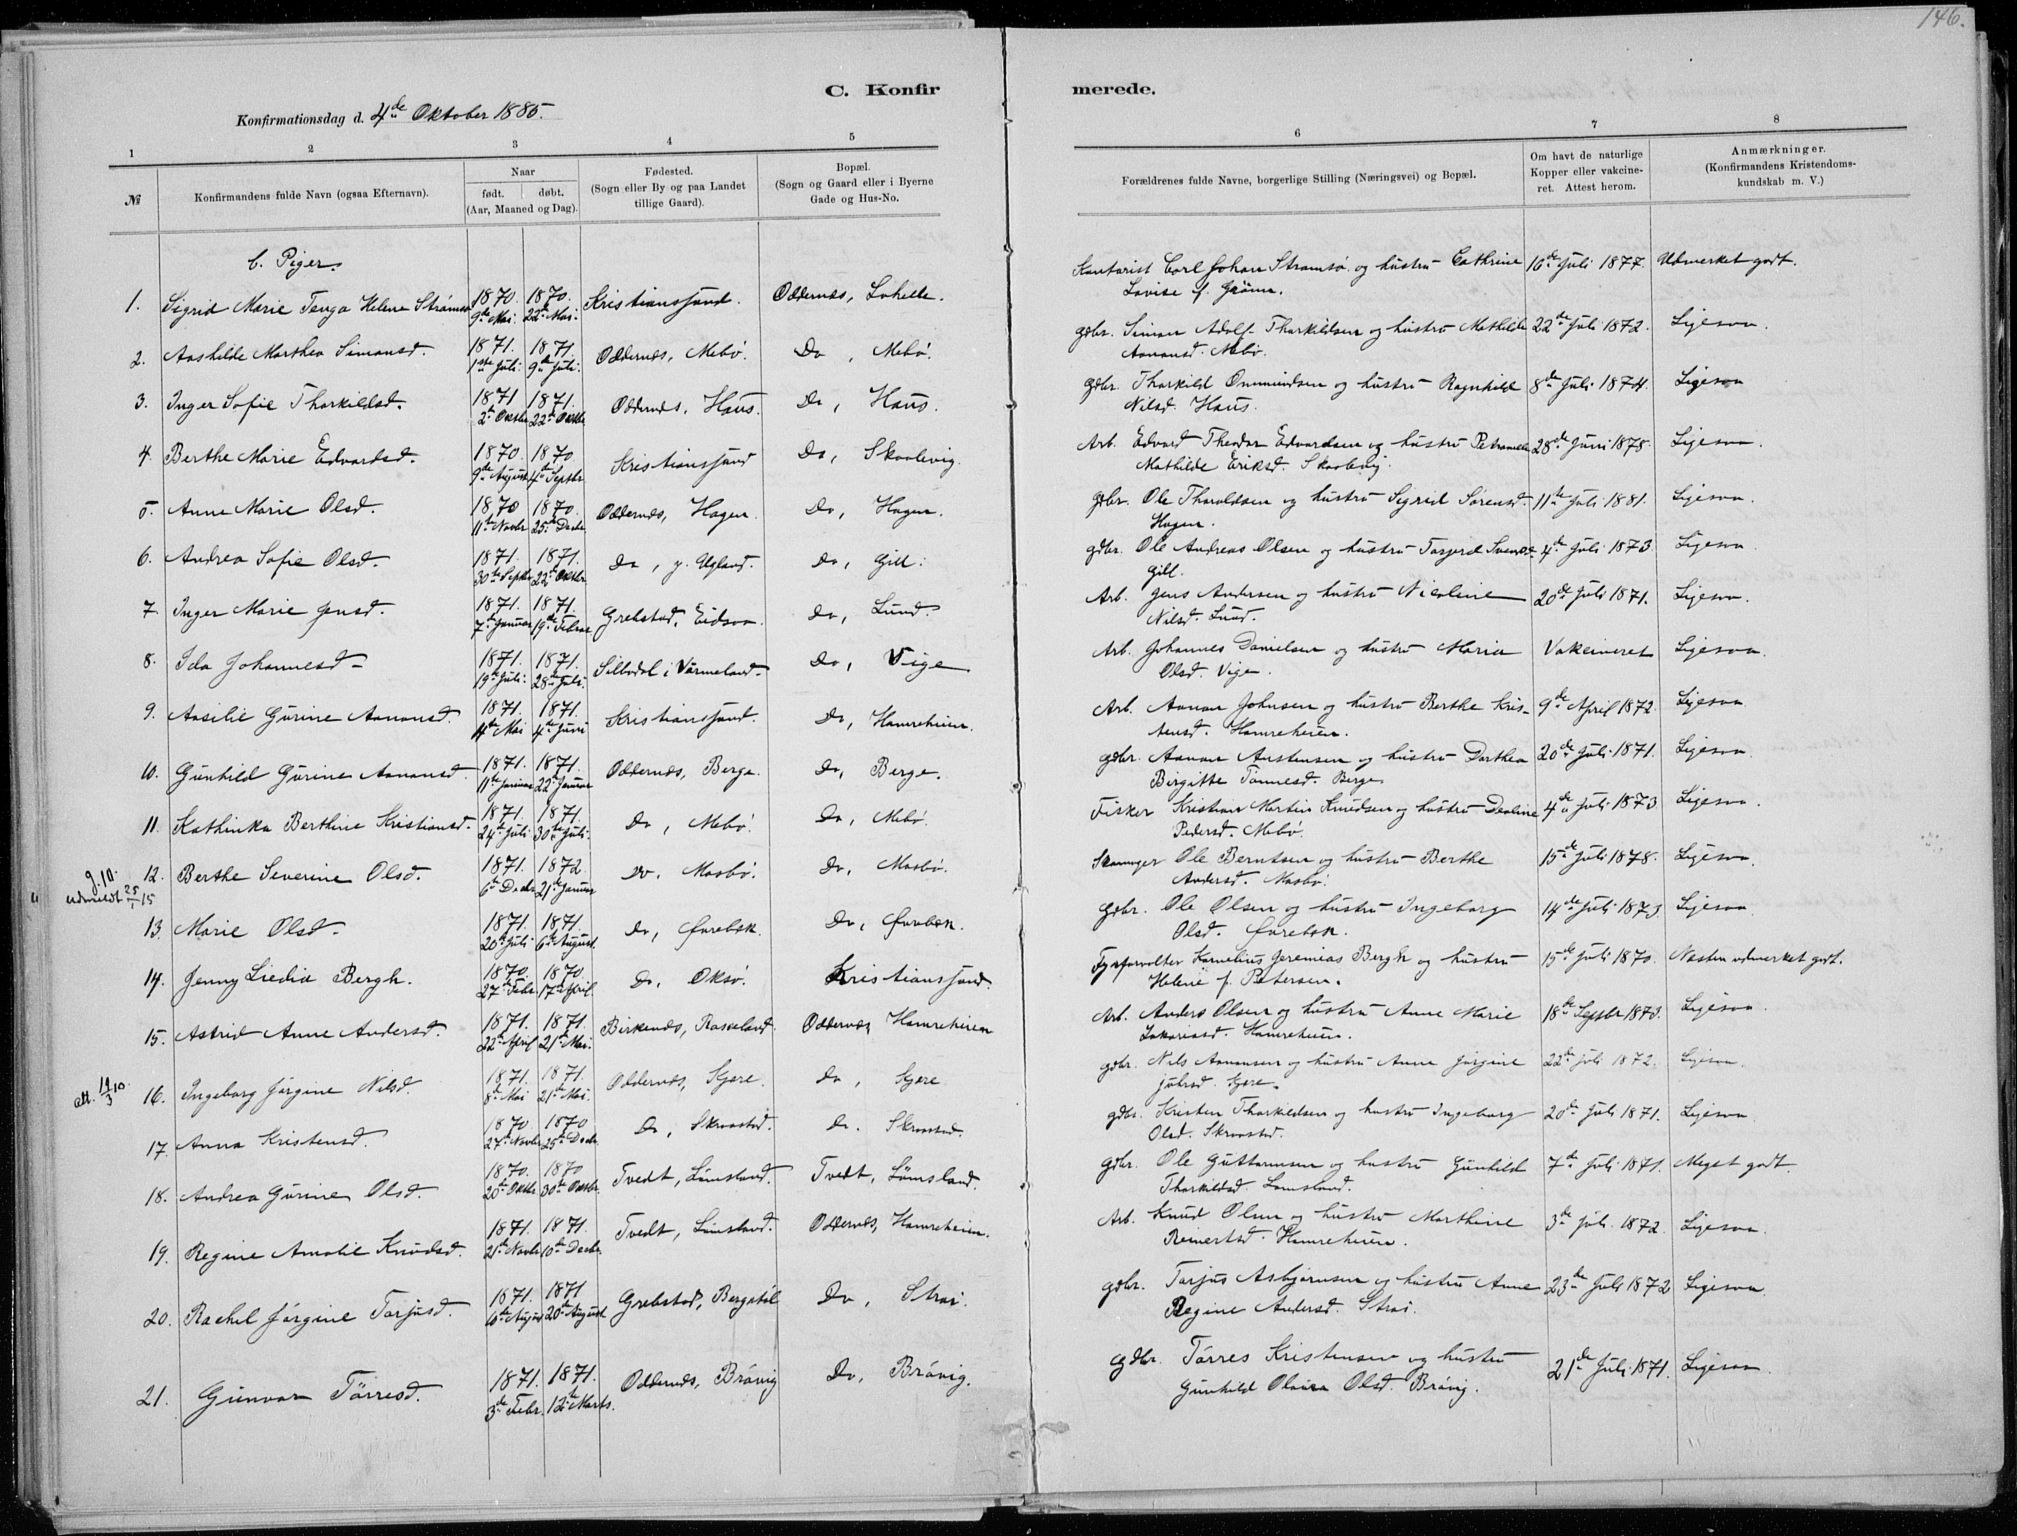 146.
C. Konfirmerede.
Konfirmationsdag d. 4de Oktober 1885.
1 2 3 4 5 6 7 8
№
Konfirmandens fulde Navn (ogsaa Efternavn).
Naar
født. døbt.
(Aar, Maaned og Dag).
Fødested.
(Sogn eller By og paa Landet
tillige Gaard).
Bopæl.
(Sogn og Gaard eller i Byerne
Gade og Hus-No.
Forældrenes fulde Navne, borgerlige Stilling (Næringsvei) og Bopæl.
Om havt de naturlige
Kopper eller vakcine-
ret. Attest herom.
Anmærkninger.
(Konfirmandens Kristendoms-
kundskab m. V.)
b. Piger.
1. Sigrid Marie Helene 1870. 9de Mai. 1870. 22de Mai. Kristianssand. Oddernæs, Kontorist Carl Johan Strømsø og hustru Cathrine 16de Juli 1877. Udmerket godt.
Lovise f.
2. Aashilde Marthea Simonsd. 1871. 1ste Juli. 1871. 9de Juli. Oddernæs, Mebø. Do, Mebø. gdbr. Simon Adolf Thorkildsen og hustru Mathilde 22de Juli 1872. Ligesaa.
Aanonsd. Mebø.
3. Inger Sofie Thorkildsd. 1871 2den Oktbr 1871. 22de Oktbr Oddernæs, Haus. Do, Haus. gdbr. Thorkild Onmundsen og hustru Ragnhild 8de Juli 1874. Ligesaa
Nilsd. Haus.
4. Berthe Marie Edvardsd. 1870. 9de August 1870 4de Septbr. Kristianssand Do, Skaalevig. Arb. Edvard Theodor Edvardsen og hustru 28de Juni 1878. Ligesaa.
Mathilde Eriksd. Skaalevig.
5. Anne Marie Olsd. 1870 11te Novbr 1870. 25de Decbr Oddernæs, Hagen. Do, Hagen. gdbr. Ole Tharaldsen og hustru Sigrid Sørensd. 11te Juli 1881. Ligesaa.
Hagen.
6. Andrea Sofie Olsd. 1871. 30te Septbr 1871. 22de Oktbr. Do, y. Ugland. Do, Gill. gdbr. Ole Andreas Olsen og hustru Torjerd Svensd. 4de Juli 1873. Ligesaa
Gill.
7. Inger Marie Jensd. 1871. 7de Januar 1871. 19de Februar Grebstad, Eidsaa. Do, Lund. Arb. Jens Andersen og hustru Nicoline 20de Juli 1871. Ligesaa.
Nilsd. Lund.
8. Ida Johannesd. 1871. 19de Juli. 1871. 28de Juli. Silbodal i Värmeland. Do, Vige Arb. Johannes Danielsen og hustru Maria Vakcineret Ligesaa.
Olsd. Vige.
9. Aasilie Gurine Aanonsd. 1871. Mai 1871. 4de Juni Kristianssand. Do, Hamreheien. Arb. Aanon Johnsen og hustru Berthe Kris- 9de April 1872. Ligesaa
tensd. Hamreheien.
10. Gunhild Gurine Aanonsd. 1871. 11te Januar 1871. 22de Januar Oddernæs, Berge. Do, Berge. gdbr. Aanon Austensen og hustru Dorthea 20de Juli 1871. Ligesaa.
Birgitte Tønnesd. Berge.
11. Kathinka Berthine Kristiansd. 1871. 24de Juli 1871. 30te Juli. Do, Mebø. Do, Mebø. Fisker Kristian Martin Knudsen og hustru 4de Juli 1873 Ligesaa.
Pedersd. Mebø.
g. 10. udmeldt 25/1 15
12. Berthe Severine Olsd. 1871. 6te Decbr 1872 21de Januar Do, Mosbø. Do, Mosbø. Ole Berntsen og hustru Berthe 15de Juli 1878. Ligesaa.
Andersd. Mosbø.
13. Marie Olsd. 1871. 20de Juli 1871. 6te August. Do, Do, gdbr. Ole Olsen og hustru Ingeborg 14de Juli 1873 Ligesaa.
Olsd.
14. Jenny Liedia Bergh. 1870. 27de Febr. 1870. 17de April. Do, Oksø. Kristianssand. Fyrforvalter Kornelius Jeremias Bergh og hustru 15de Juli 1870. Næsten udmerket godt.
Helene f. Petersen.
15. Astrid Anne Andersd. 1871. 22de April 1871. 21de Mai. Birkenæs, Rosseland. Oddernæs Hamreheien Arb. Anders Olsen og hustru Anne Marie 18de Septbr 1873. Ligesaa.
Zakariasd. Hamreheien.
att. 14/3 10
16. Ingeborg Jørgine Nilsd. 1871. 8de Mai 1871. 21de Mai. Oddernæs, Gjere. Do, Gjere gdbr. Nils Aanonsen og hustru Anne Jørgine 22de Juli 1872. Ligesaa.
Gjere.
17. Anna Kristensd. 1870. 27de Novbr 1870 25de Decbr. Do, Skraastad. Do. Skraastad. gdbr. Kristen Thorkildsen og hustru Ingeborg 20de Juli 1871. Ligesaa
Olsd. Skraastad.
18. Andrea Gurine Olsd. 1870. 20de Oktbr 1870 30te Oktbr. Tvedt, Lømsland. Tvedt, Lømsland. gdbr. Ole Guttormsen og hustru Gunhild 7de Juli 1871. Meget godt.
Thorkildsd. Lømsland.
19. Regine Amalie Knudsd. 1871. 21de Novbr 1871. 10de Decbr. Tvedt, Lømsland. Oddernæs, Hamreheien. Arb. Knud Olsen og hustru Marthine 3de Juli 1872. Ligesaa.
Reinertsd. Hamreheien.
20. Rachel Jørgine Torjusd. 1871. August 1871 20de August. Grebstad, Bergstøl Do, Strai. gdbr. Torjus Asbjørnsen og hustru Anne 23de Juli 1872 Ligesaa.
Regine Andersd. Strai.
21. Gunvor Tørresd. 1871. 3de Febr. 1871. 12te Marts. Oddernæs, Brøvig Do, Brøvig. gdbr. Tørres Kristensen og hustru 21de Juli 1871. Ligesaa
Gunhild Olsd. Brøvig.